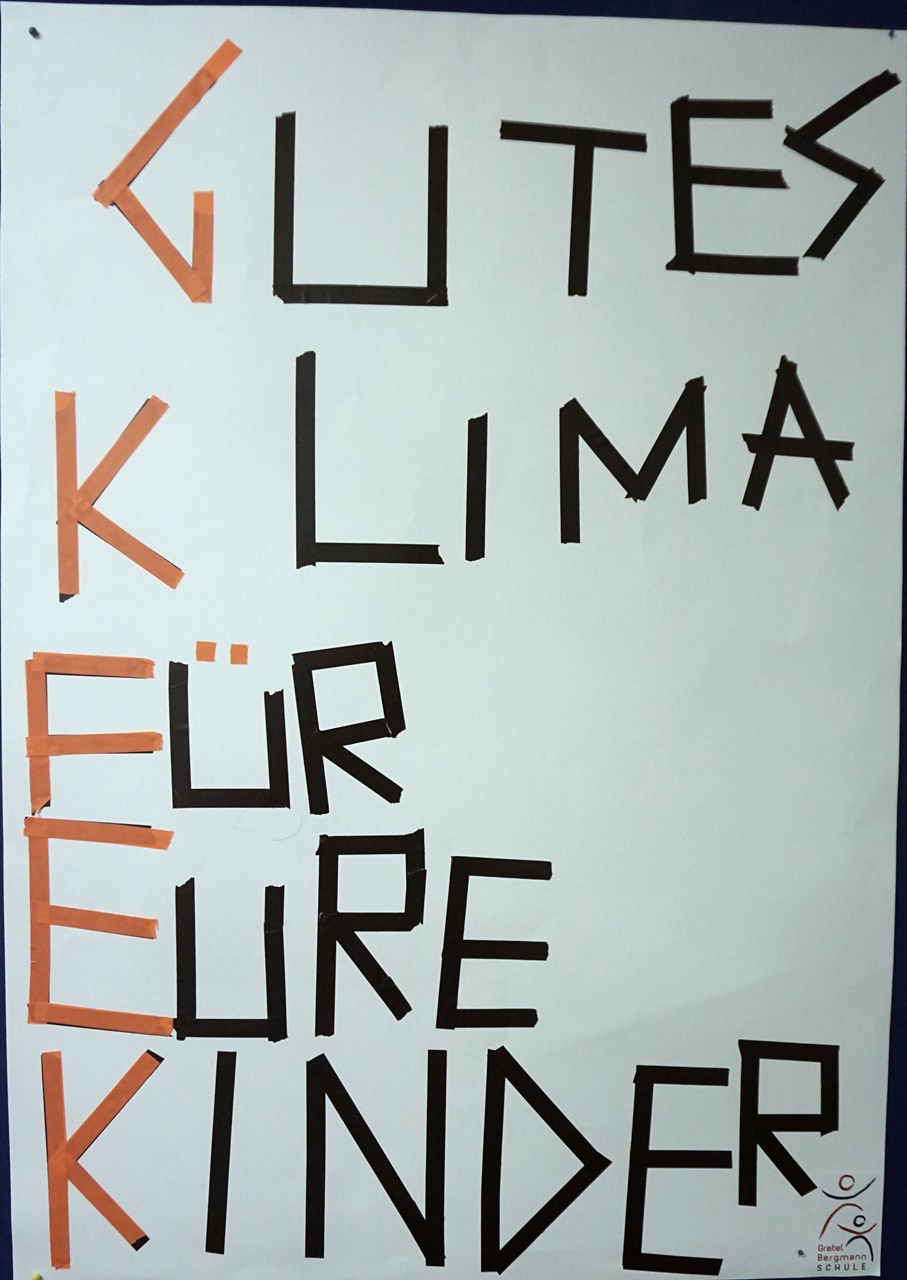 GUTES
KLIMA
FÜR
EURE
KINDER
Gretel
Bergmann
SCHULE